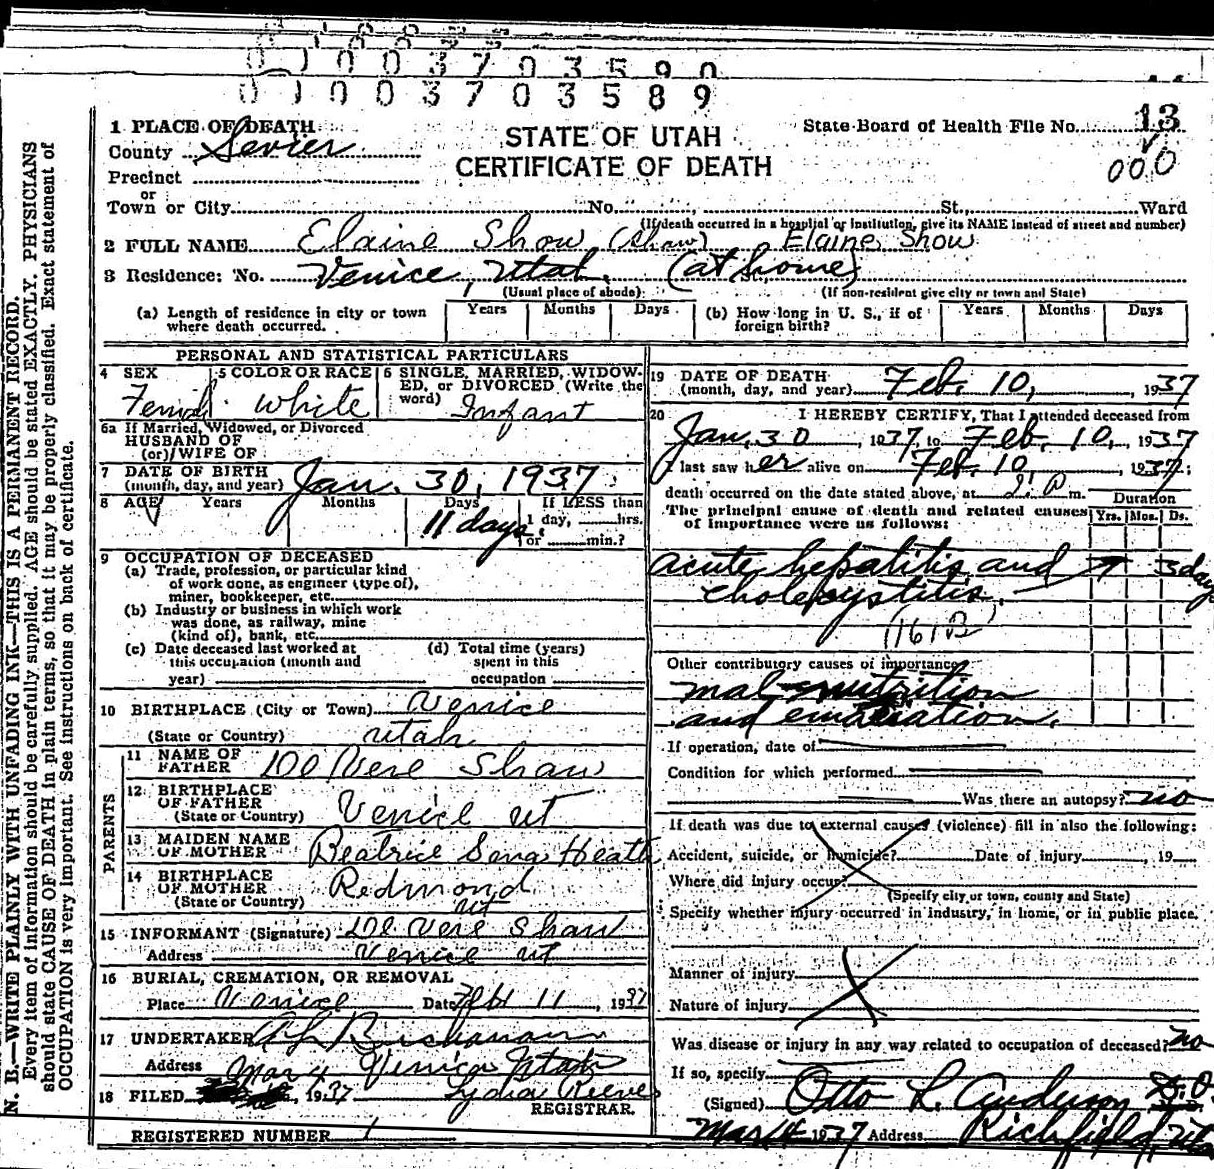 0 1 0 0 3 7 0 3 5 9 0
0 1 0 0 3 7 0 3 5 8 9
N. B.—WRITE PLAINLY WITH UNFADING INK—THIS IS A PERMANENT RECORD.
Every item of information should be carefully supplied. AGE should be stated EXACTLY. PHYSICIANS
should state CAUSE OF DEATH in plain terms, so that it may be properly classified. Exact statement of
OCCUPATION is very important. See instructions on back of certificate.
STATE OF UTAH
CERTIFICATE OF DEATH
State Board of Health File No. 13
000
1 PLACE OF DEATH
County Sevier
Precinct
or
Town or City No. St., Ward
(If death occurred in a hospital or institution, give its NAME instead of street and number)
2 FULL NAME Elaine Show (Shaw) Elaine Show
3 Residence: No. Venice, Utah. (at home)
(Usual place of abode) (If non-resident give city or town and State)
(a) Length of residence in city or town where death occurred. Years Months Days
(b) How long in U. S., if of foreign birth? Years Months Days
PERSONAL AND STATISTICAL PARTICULARS
4 SEX
5 COLOR OR RACE white
6 SINGLE, MARRIED, WIDOWED, or DIVORCED (Write the word) Infant
6a If Married, Widowed, or Divorced
HUSBAND OF
(or) WIFE OF
7 DATE OF BIRTH
(month, day, and year) Jan. 30, 1937
8 AGE Years Months Days If LESS than
11 days. 1 day, hrs.
or min.?
9 OCCUPATION OF DECEASED
(a) Trade, profession, or particular kind
of work done, as engineer (type of),
miner, bookkeeper, etc.
(b) Industry or business in which work
was done, as railway, mine
(kind of), bank, etc.
(c) Date deceased last worked at
this occupation (month and
year)
(d) Total time (years)
spent in this
occupation
10 BIRTHPLACE (City or Town) Venice
(State or Country) Utah.
PARENTS
11 NAME OF
FATHER Vere Shaw
12 BIRTHPLACE
OF FATHER
(State or Country) Venice Ut
13 MAIDEN NAME
OF MOTHER Beatrice Heath
14 BIRTHPLACE
OF MOTHER
(State or Country) Redmond
Ut
15 INFORMANT (Signature) Vere Shaw
Address Venice Ut
16 BURIAL, CREMATION, OR REMOVAL
Place Venice Date Feb 11, 1937
17 UNDERTAKER Buchanan
Address Venice Utah
18 FILED Mar 4, 1937 Lydia Reeves
REGISTRAR.
REGISTERED NUMBER 1
19 DATE OF DEATH
(month, day, and year) Feb. 10, 1937
20 I HEREBY CERTIFY, That I attended deceased from
Jan. 30, 1937, to Feb. 10, 1937
I last saw her alive on Feb. 10, 1937;
death occurred on the date stated above, at P m. Duration
The principal cause of death and related causes Yrs. Mos. Ds.
of importance were as follows:
acute hepatitis and 3 days
cholecystitis.
(161B)
Other contributory causes of importance
malnutrition
and emaciation.
If operation, date of
Condition for which performed
Was there an autopsy? no
If death was due to external causes (violence) fill in also the following:
Accident, suicide, or homicide? Date of injury , 19
Where did injury occur?
(Specify city or town, county and State)
Specify whether injury occurred in industry, in home, or in public place.
Manner of injury
Nature of injury
Was disease or injury in any way related to occupation of deceased? no
If so, specify
(Signed) Otto L. Anderson D.O.
Mar 4 1937 Address Richfield, Utah